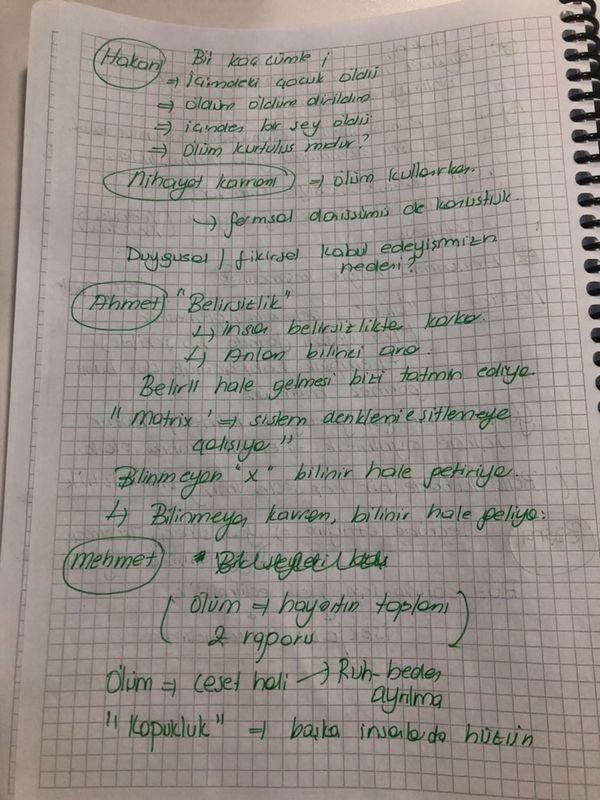 Hakan Bir kaç cümle ;
⇒ İçimdeki çocuk öldü
⇒ öldüm öldüm dirildim
⇒ içimden bir şey öldü
⇒ Ölüm kurtuluş mudur?
Nihayet kavramı ⇒ ölüm kullanırken.
→ formsal dönüşümü de konuştuk.
Duygusal / fikirsel kabul edeyişimizin
nedeni?
Ahmet "Belirsizlik"
↳ insan belirsizlikten korkar.
↳ Anlam bilinci arar.
Belirli hale gelmesi bizi tatmin ediyor
"Matrix" ⇒ sistem denklemi eşitlemeye
çalışıyor"
Bilinmeyen "x" bilinir hale getiriyor.
↳ Bilinmeyen kavram, bilinir hale geliyor.
Mehmet
(Ölüm ⇒ hayatın toplamı
2 raporu)
Ölüm ⇒ Ceset hali → Ruh-beden
ayrılma
"Kopukluk" ⇒ başka insanlarda hüzün